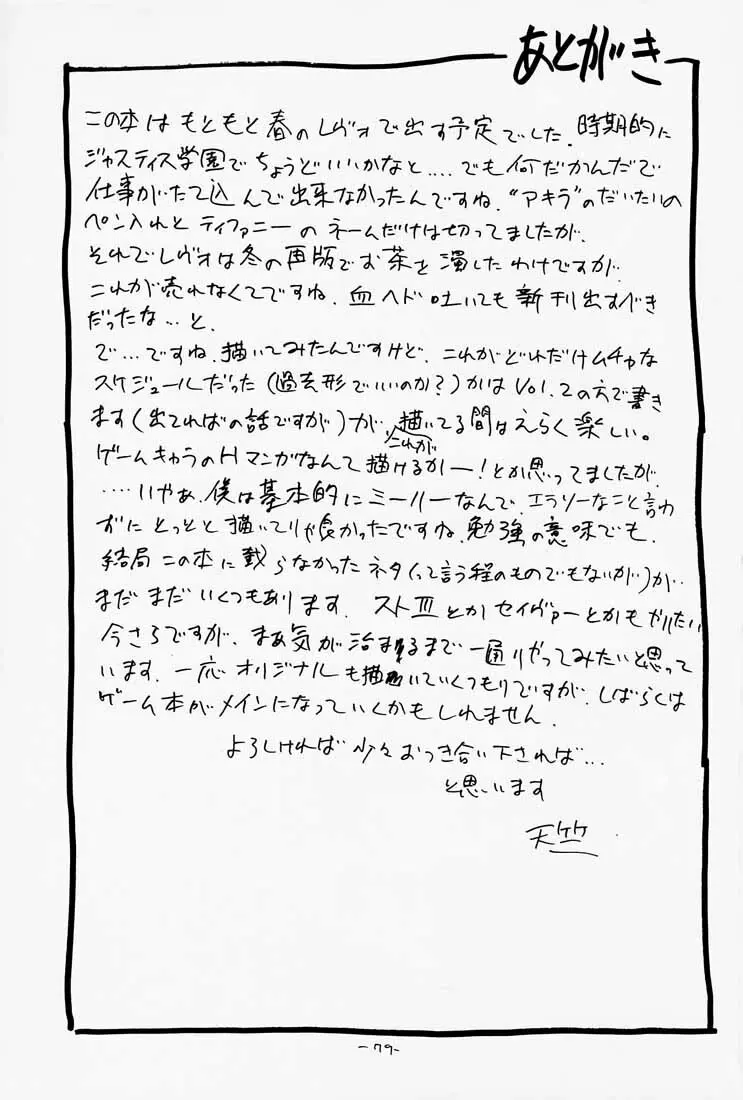 あとがき
この本はもともと春のレヴォで出す予定でした．時期的に
ジャスティス学園でちょうどいいかなと‥‥でも何だかんだで
仕事がたて込んで出来なかったんですね．“アキラ”のだいたいの
ペン入れとティファニーのネームだけは切ってましたが．
それでレヴォは冬の再版でお茶を濁したわけですが
これが売れなくてですね．血ヘド吐いても新刊出すべき
だったな…と．
で…ですね．描いてみたんですけど．これがどれだけムチャな
スケジュールだった(過去形でいいのか?)かはVol.2の方で書き
ます(出てればの話ですが)が、描いてる間はえらく楽しい。
これが
ゲームキャラのHマンガなんて描けるかー!とか思ってましたが．
‥‥いやぁ．僕は基本的にミーハーなんで．エラソーなこと言わ
ずにとっとと描いてりゃ良かったですね．勉強の意味でも．
結局この本に載らなかったネタ(って言う程のものでもないが)が
まだまだいくつもあります．ストⅢとかセイヴァーとかもやりたい
今さらですが、まぁ気が治まるまで一通りやってみたいと思って
います．一応オリジナルも描いていくつもりですが．しばらくは
ゲーム本がメインになっていくかもしれません．
よろしければ少々おつき合い下されば…
と思います
天竺
-79-